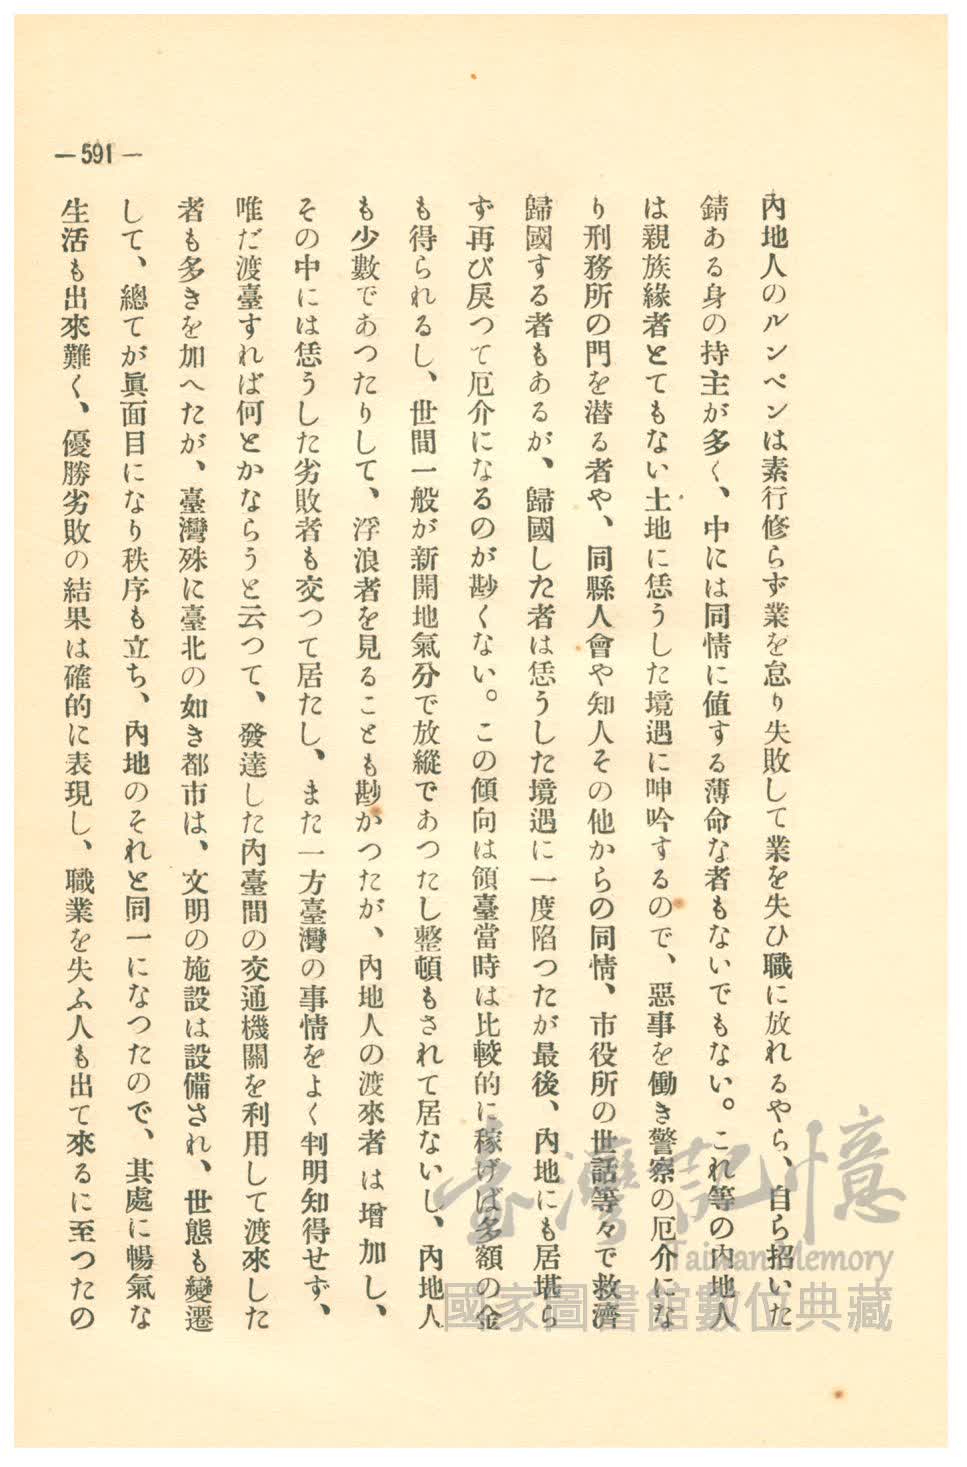 — 591 —
內地人のルンペンは素行修らず業を怠り失敗して業を失ひ職に放れるやら、自ら招いた
錆ある身の持主が多く、中には同情に値する薄命な者もないでもない。これ等の內地人
は親族緣者とてもない土地に恁うした境遇に呻吟するので、惡事を働き警察の厄介にな
り刑務所の門を潜る者や、同縣人會や知人その他からの同情、市役所の世話等々で救濟
歸國する者もあるが、歸國した者は恁うした境遇に一度陷つたが最後、內地にも居堪ら
ず再び戾つて厄介になるのが尠くない。この傾向は領臺當時は比較的に稼げば多額の金
も得られるし、世間一般が新開地氣分で放縱であつたし整頓もされて居ないし、內地人
も少數であつたりして、浮浪者を見ることも尠かつたが、內地人の渡來者は增加し、
その中には恁うした劣敗者も交つて居たし、また一方臺灣の事情をよく判明知得せず、
唯だ渡臺すれば何とかならうと云つて、發達した內臺間の交通機關を利用して渡來した
者も多きを加へたが、臺灣殊に臺北の如き都市は、文明の施設は設備され、世態も變遷
して、總てが眞面目になり秩序も立ち、內地のそれと同一になつたので、其處に暢氣な
生活も出來難く、優勝劣敗の結果は確的に表現し、職業を失ふ人も出て來るに至つたの
臺灣記憶
Taiwan Memory
國家圖書館數位典藏